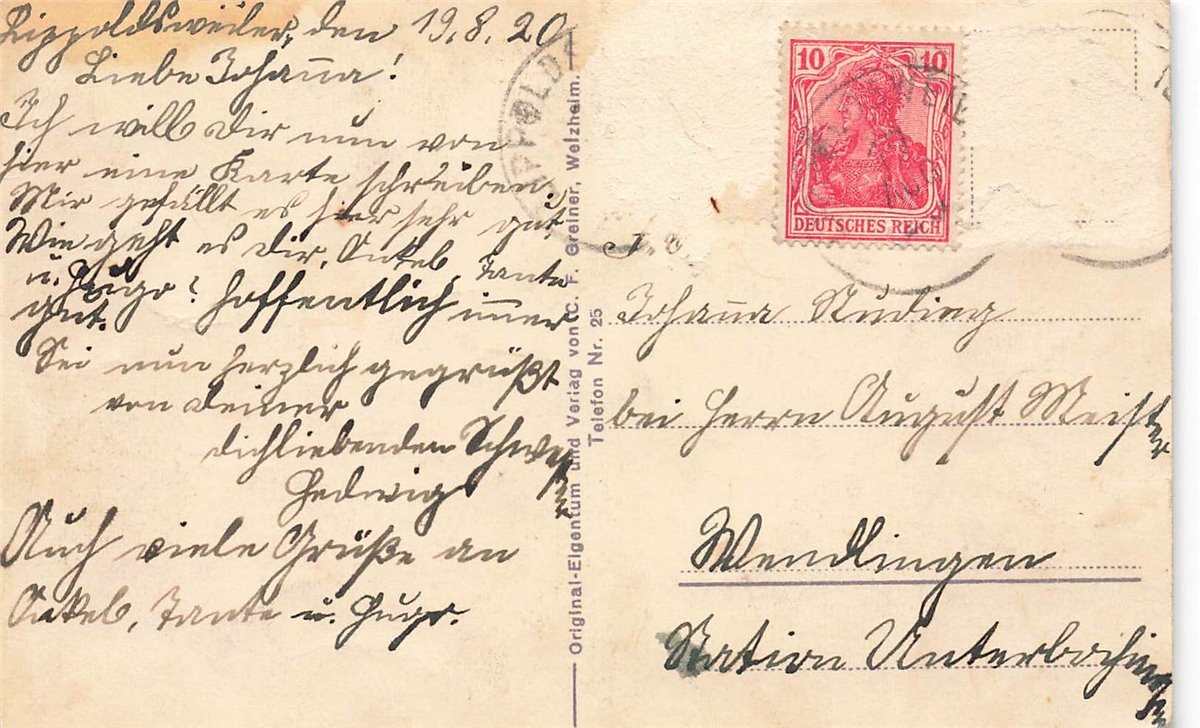 Lippoldsweiler, den 19.8.20
Liebe Johanna!
Ich will Dir nun von
hier eine Karte schreiben.
Mir gefällt es hier sehr gut.
Wie geht es dir, Onkel, Tante
u. Hugo? Hoffentlich immer
gut.
Sei nun herzlich gegrüßt
von deiner
dichliebenden Schwester
Hedwig
Auch viele Grüße an
Onkel, Tante u. Hugo.
Original-Eigentum und Verlag von C. F. Greiner, Welzheim.
Telefon Nr. 25
10 10
DEUTSCHES REICH
Johanna
bei Herrn August Meister
Wendlingen
Station Unterboihingen